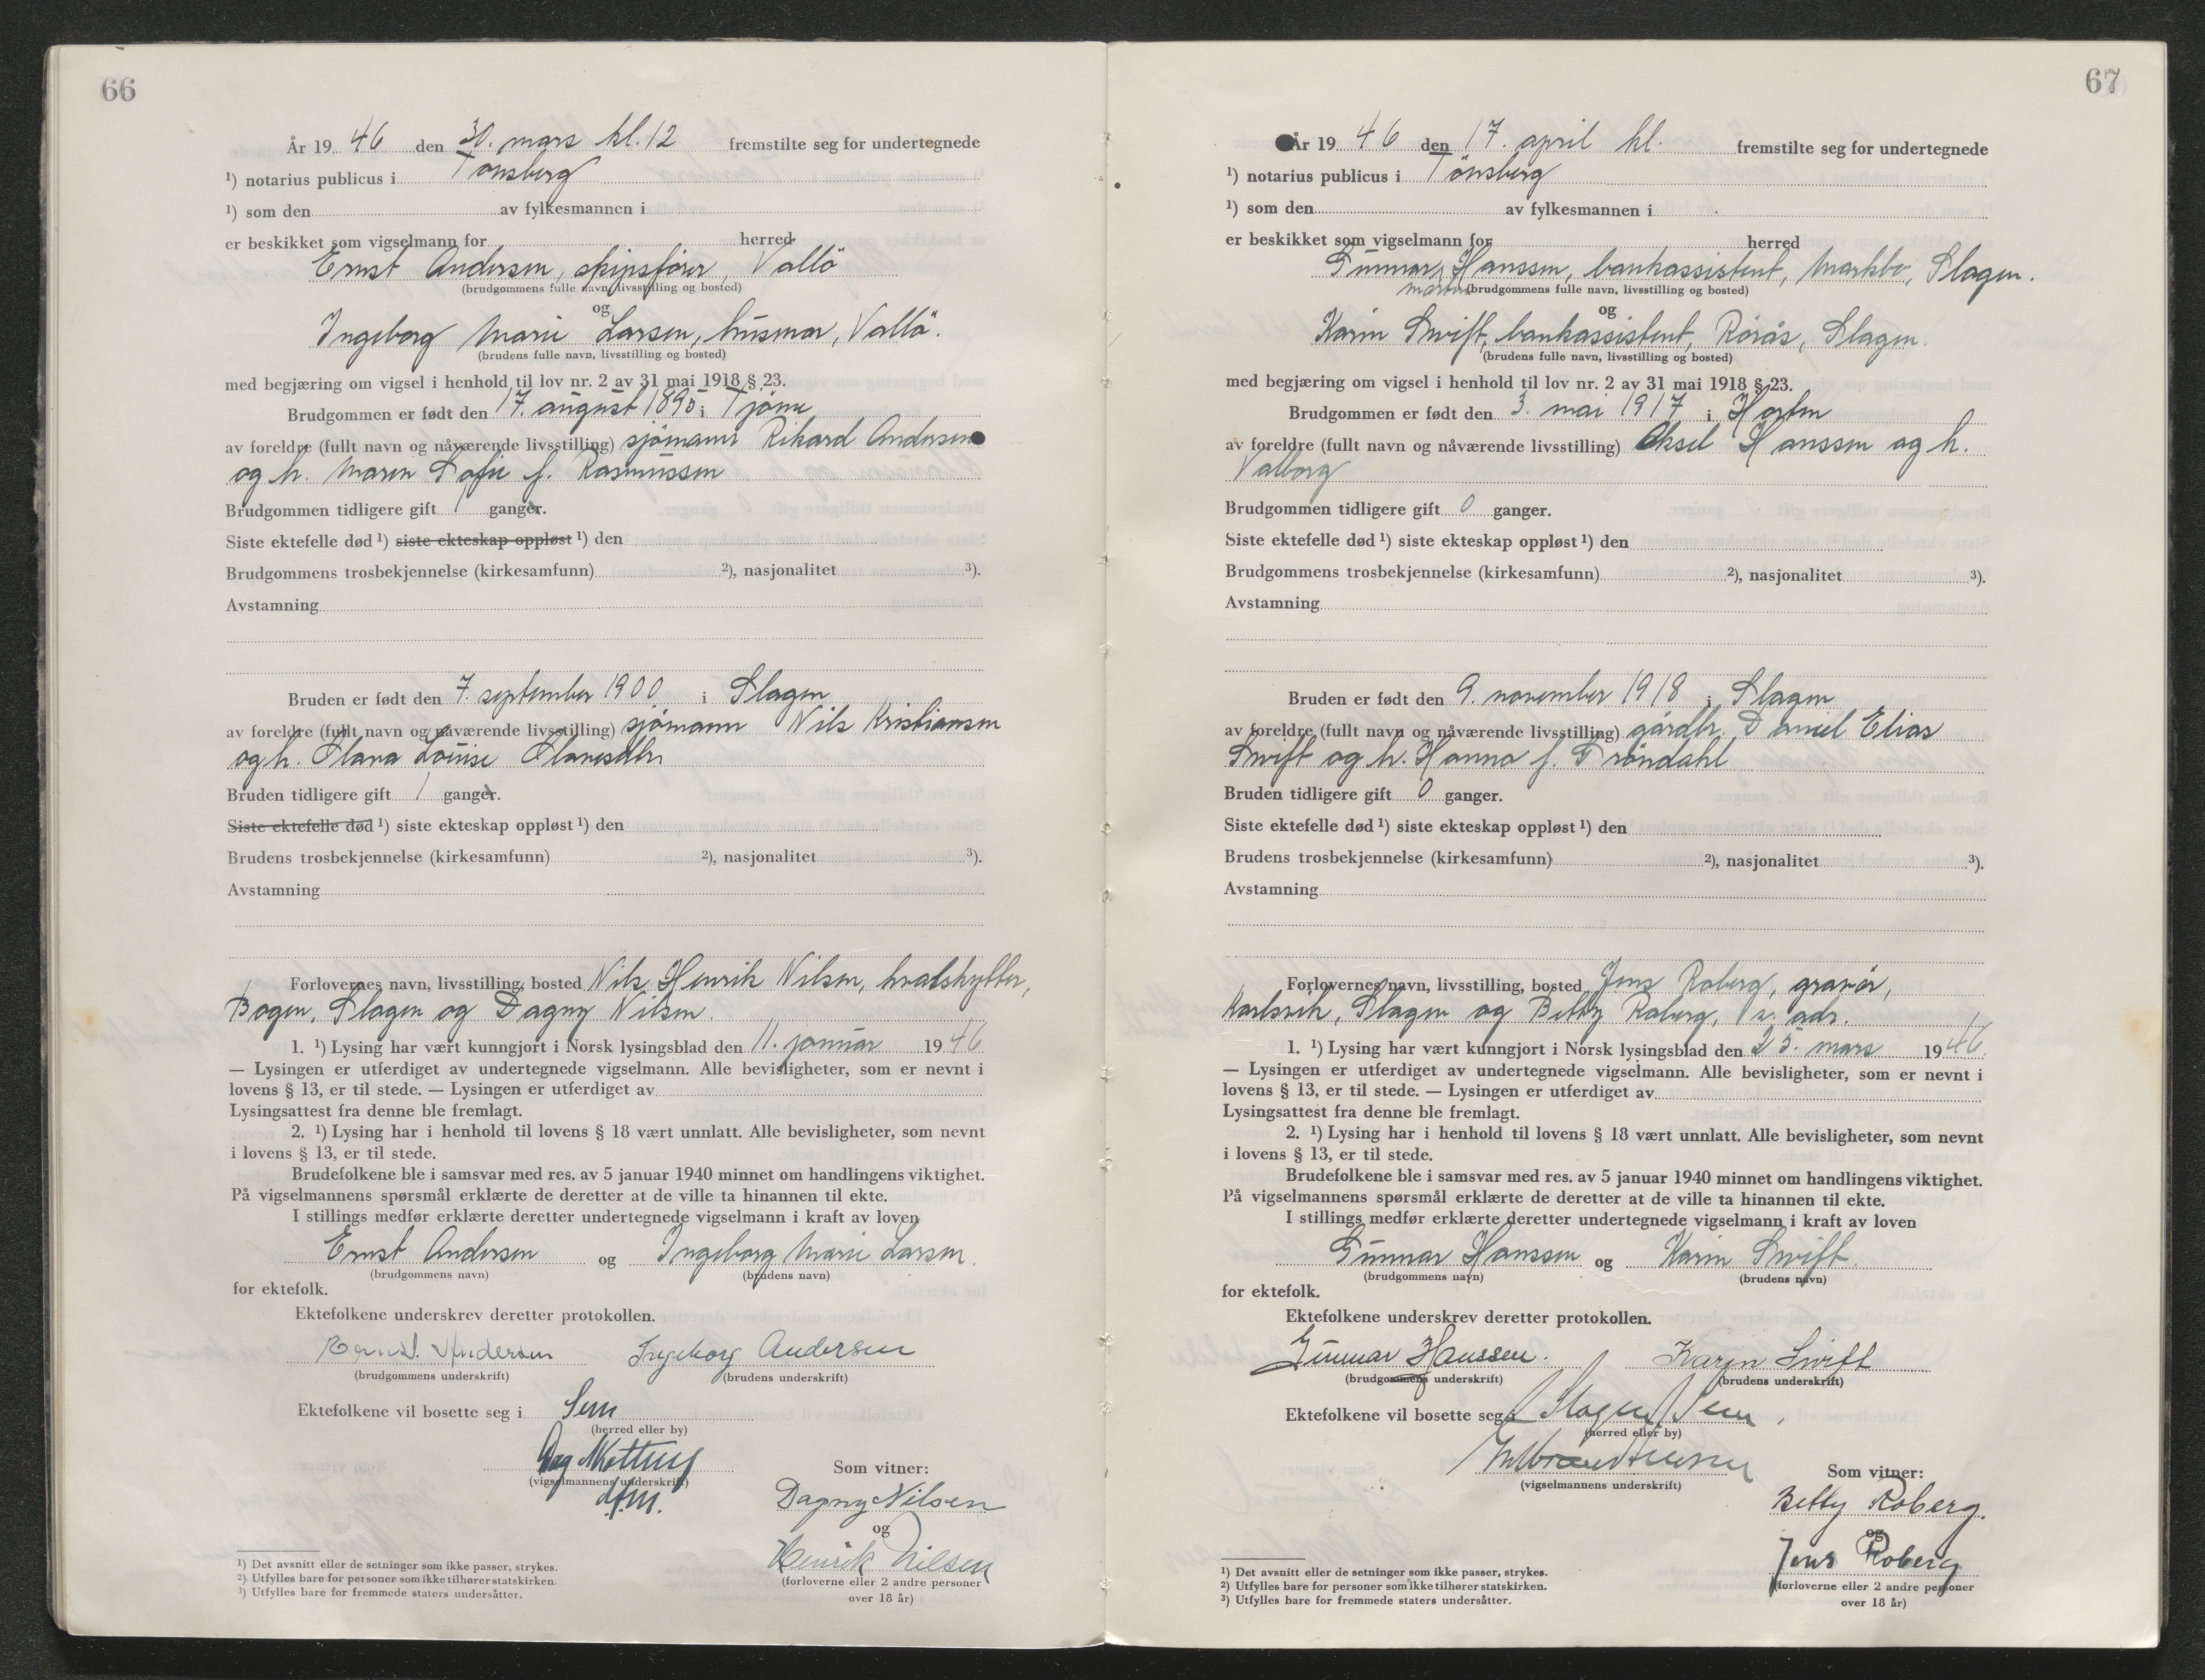 66
År 19 46 den 30. mars kl. 12 fremstilte seg for undertegnede
¹) notarius publicus i Tønsberg
¹) som den av fylkesmannen i
er beskikket som vigselmann for herred
Ernst Andersen, skipsfører, Vallö
(brudgommens fulle navn, livsstilling og bosted)
og
Ingeborg Marie Larsen, husmor, Vallö.
(brudens fulle navn, livsstilling og bosted)
med begjæring om vigsel i henhold til lov nr. 2 av 31 mai 1918 § 23.
Brudgommen er født den 17. august 1895 i Tjöme
av foreldre (fullt navn og nåværende livsstilling) sjömann Rikard Andersen
og h. Maren Sofie f. Rasmussen
Brudgommen tidligere gift 1 ganger.
Siste ektefelle død ¹) siste ekteskap oppløst ¹) den
Brudgommens trosbekjennelse (kirkesamfunn) ²), nasjonalitet ³).
Avstamning
Bruden er født den 7. september 1900 i Slagen
av foreldre (fullt navn og nåværende livsstilling) sjömann Nils Kristiansen
og h. Klara Louise
Bruden tidligere gift 1 ganger.
Siste ektefelle død ¹) siste ekteskap oppløst ¹) den
Brudens trosbekjennelse (kirkesamfunn) ²), nasjonalitet ³).
Avstamning
Forlovernes navn, livsstilling, bosted Nils Henrik Nilsen, hvalskytter,
Bogen, Slagen og Dagny Nilsen.
1. ¹) Lysing har vært kunngjort i Norsk lysingsblad den 11. januar 19 46
— Lysingen er utferdiget av undertegnede vigselmann. Alle bevisligheter, som er nevnt i
lovens § 13, er til stede. — Lysingen er utferdiget av
Lysingsattest fra denne ble fremlagt.
2. ¹) Lysing har i henhold til lovens § 18 vært unnlatt. Alle bevisligheter, som nevnt
i lovens § 13, er til stede.
Brudefolkene ble i samsvar med res. av 5 januar 1940 minnet om handlingens viktighet.
På vigselmannens spørsmål erklærte de deretter at de ville ta hinannen til ekte.
I stillings medfør erklærte deretter undertegnede vigselmann i kraft av loven
Ernst Andersen og Ingeborg Marie Larsen.
(brudgommens navn) (brudens navn)
for ektefolk.
Ektefolkene underskrev deretter protokollen.
Ernst Andersen Ingeborg Andersen
(brudgommens underskrift) (brudens underskrift)
Ektefolkene vil bosette seg i Sem
(herred eller by)
Dag
(vigselmannens underskrift)
d.f.m.
Som vitner:
Dagny Nilsen
og
Henrik Nilsen
(forloverne eller 2 andre personer
over 18 år)
¹) Det avsnitt eller de setninger som ikke passer, strykes.
²) Utfylles bare for personer som ikke tilhører statskirken.
³) Utfylles bare for fremmede staters undersåtter.
67
År 19 46 den 17. april kl. fremstilte seg for undertegnede
¹) notarius publicus i Tönsberg
¹) som den av fylkesmannen i
er beskikket som vigselmann for herred
Gunnar Hanssen, bankassistent, Markbo, Slagen.
Martin (brudgommens fulle navn, livsstilling og bosted)
og
Karin Swift, bankassistent, Rörås, Slagen.
(brudens fulle navn, livsstilling og bosted)
med begjæring om vigsel i henhold til lov nr. 2 av 31 mai 1918 § 23.
Brudgommen er født den 3. mai 1917 i Horten
av foreldre (fullt navn og nåværende livsstilling) Aksel Hanssen og h.
Valborg
Brudgommen tidligere gift 0 ganger.
Siste ektefelle død ¹) siste ekteskap oppløst ¹) den
Brudgommens trosbekjennelse (kirkesamfunn) ²), nasjonalitet ³).
Avstamning
Bruden er født den 9. november 1918 i Slagen
av foreldre (fullt navn og nåværende livsstilling) gårdbr. Daniel Elias
Swift og h. Hanna f. Tröndahl
Bruden tidligere gift 0 ganger.
Siste ektefelle død ¹) siste ekteskap oppløst ¹) den
Brudens trosbekjennelse (kirkesamfunn) ²), nasjonalitet ³).
Avstamning
Forlovernes navn, livsstilling, bosted Jens Roberg, gravör,
Karlsvik, Slagen og Betty Roberg, s. adr.
1. ¹) Lysing har vært kunngjort i Norsk lysingsblad den 25. mars 19 46.
— Lysingen er utferdiget av undertegnede vigselmann. Alle bevisligheter, som er nevnt i
lovens § 13, er til stede. — Lysingen er utferdiget av
Lysingsattest fra denne ble fremlagt.
2. ¹) Lysing har i henhold til lovens § 18 vært unnlatt. Alle bevisligheter, som nevnt
i lovens § 13, er til stede.
Brudefolkene ble i samsvar med res. av 5 januar 1940 minnet om handlingens viktighet.
På vigselmannens spørsmål erklærte de deretter at de ville ta hinannen til ekte.
I stillings medfør erklærte deretter undertegnede vigselmann i kraft av loven
Gunnar Hanssen og Karin Swift.
(brudgommens navn) (brudens navn)
for ektefolk.
Ektefolkene underskrev deretter protokollen.
Gunnar Hanssen. Karin Swift
(brudgommens underskrift) (brudens underskrift)
Ektefolkene vil bosette seg i Slagen / Sem
(herred eller by)
(vigselmannens underskrift)
Som vitner:
Betty Roberg.
og
Jens Roberg
(forloverne eller 2 andre personer
over 18 år)
¹) Det avsnitt eller de setninger som ikke passer, strykes.
²) Utfylles bare for personer som ikke tilhører statskirken.
³) Utfylles bare for fremmede staters undersåtter.